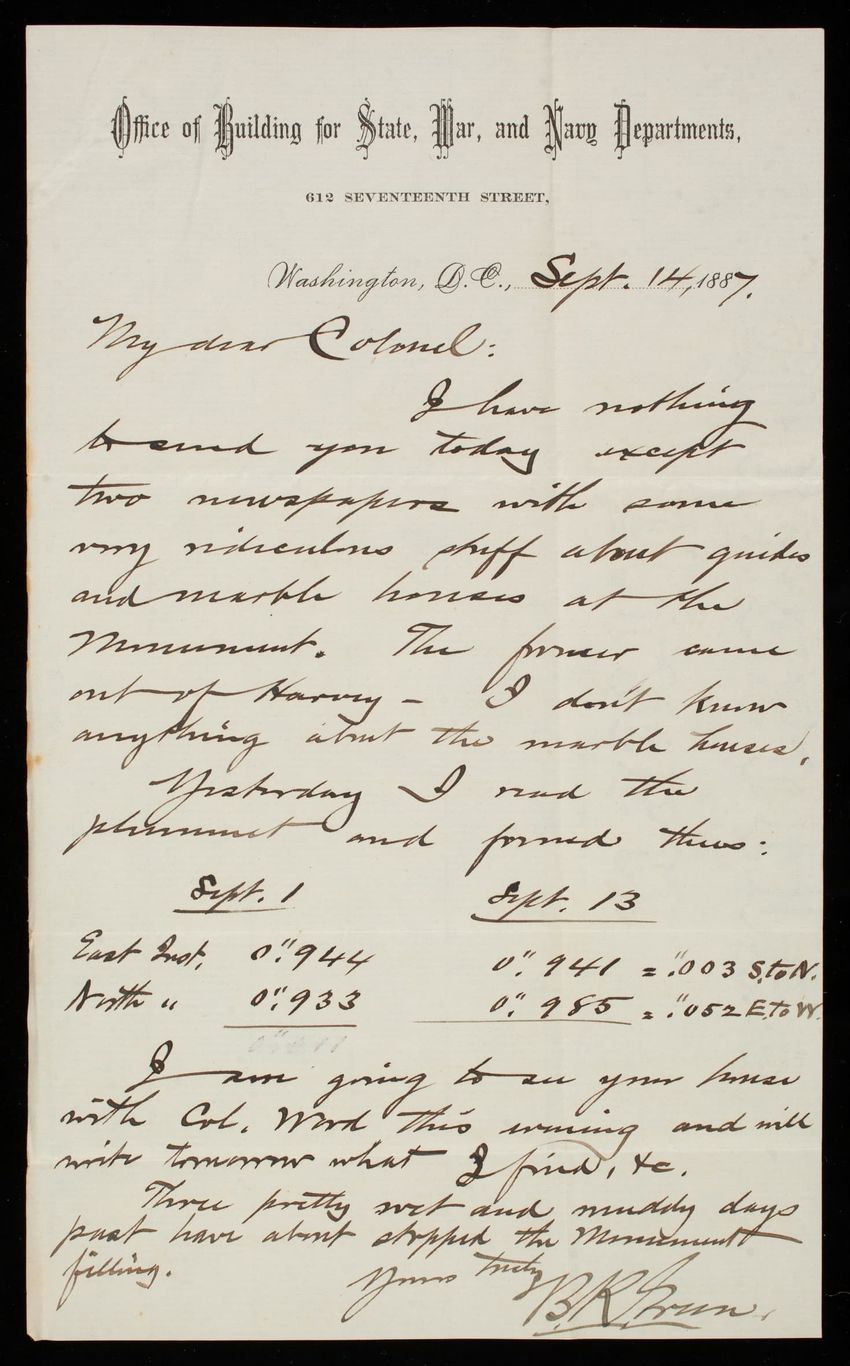 Office of Building for State, War, and Navy Departments,
612 SEVENTEENTH STREET,
Washington, D.C., Sept. 14, 1887.
My dear Colonel:
I have nothing
to send you today except
two newspapers with some
very ridiculous stuff about guides
and marble houses at the
Monument. The former came
out of Harvey - I don't know
anything about the marble houses.
Yesterday I read the
plummet and found thus:
Sept. 1 Sept. 13
East Inst. 0".944 0".941 = ".003 S. to N.
North " 0".933 0".985 = ".052 E. to W.
I am going to see your house
with Col. Word this evening and will
write tomorrow what I find, &c.
Three pretty wet and muddy days
past have about stopped the Monument
filling.
Yours truly
B. R. Green.